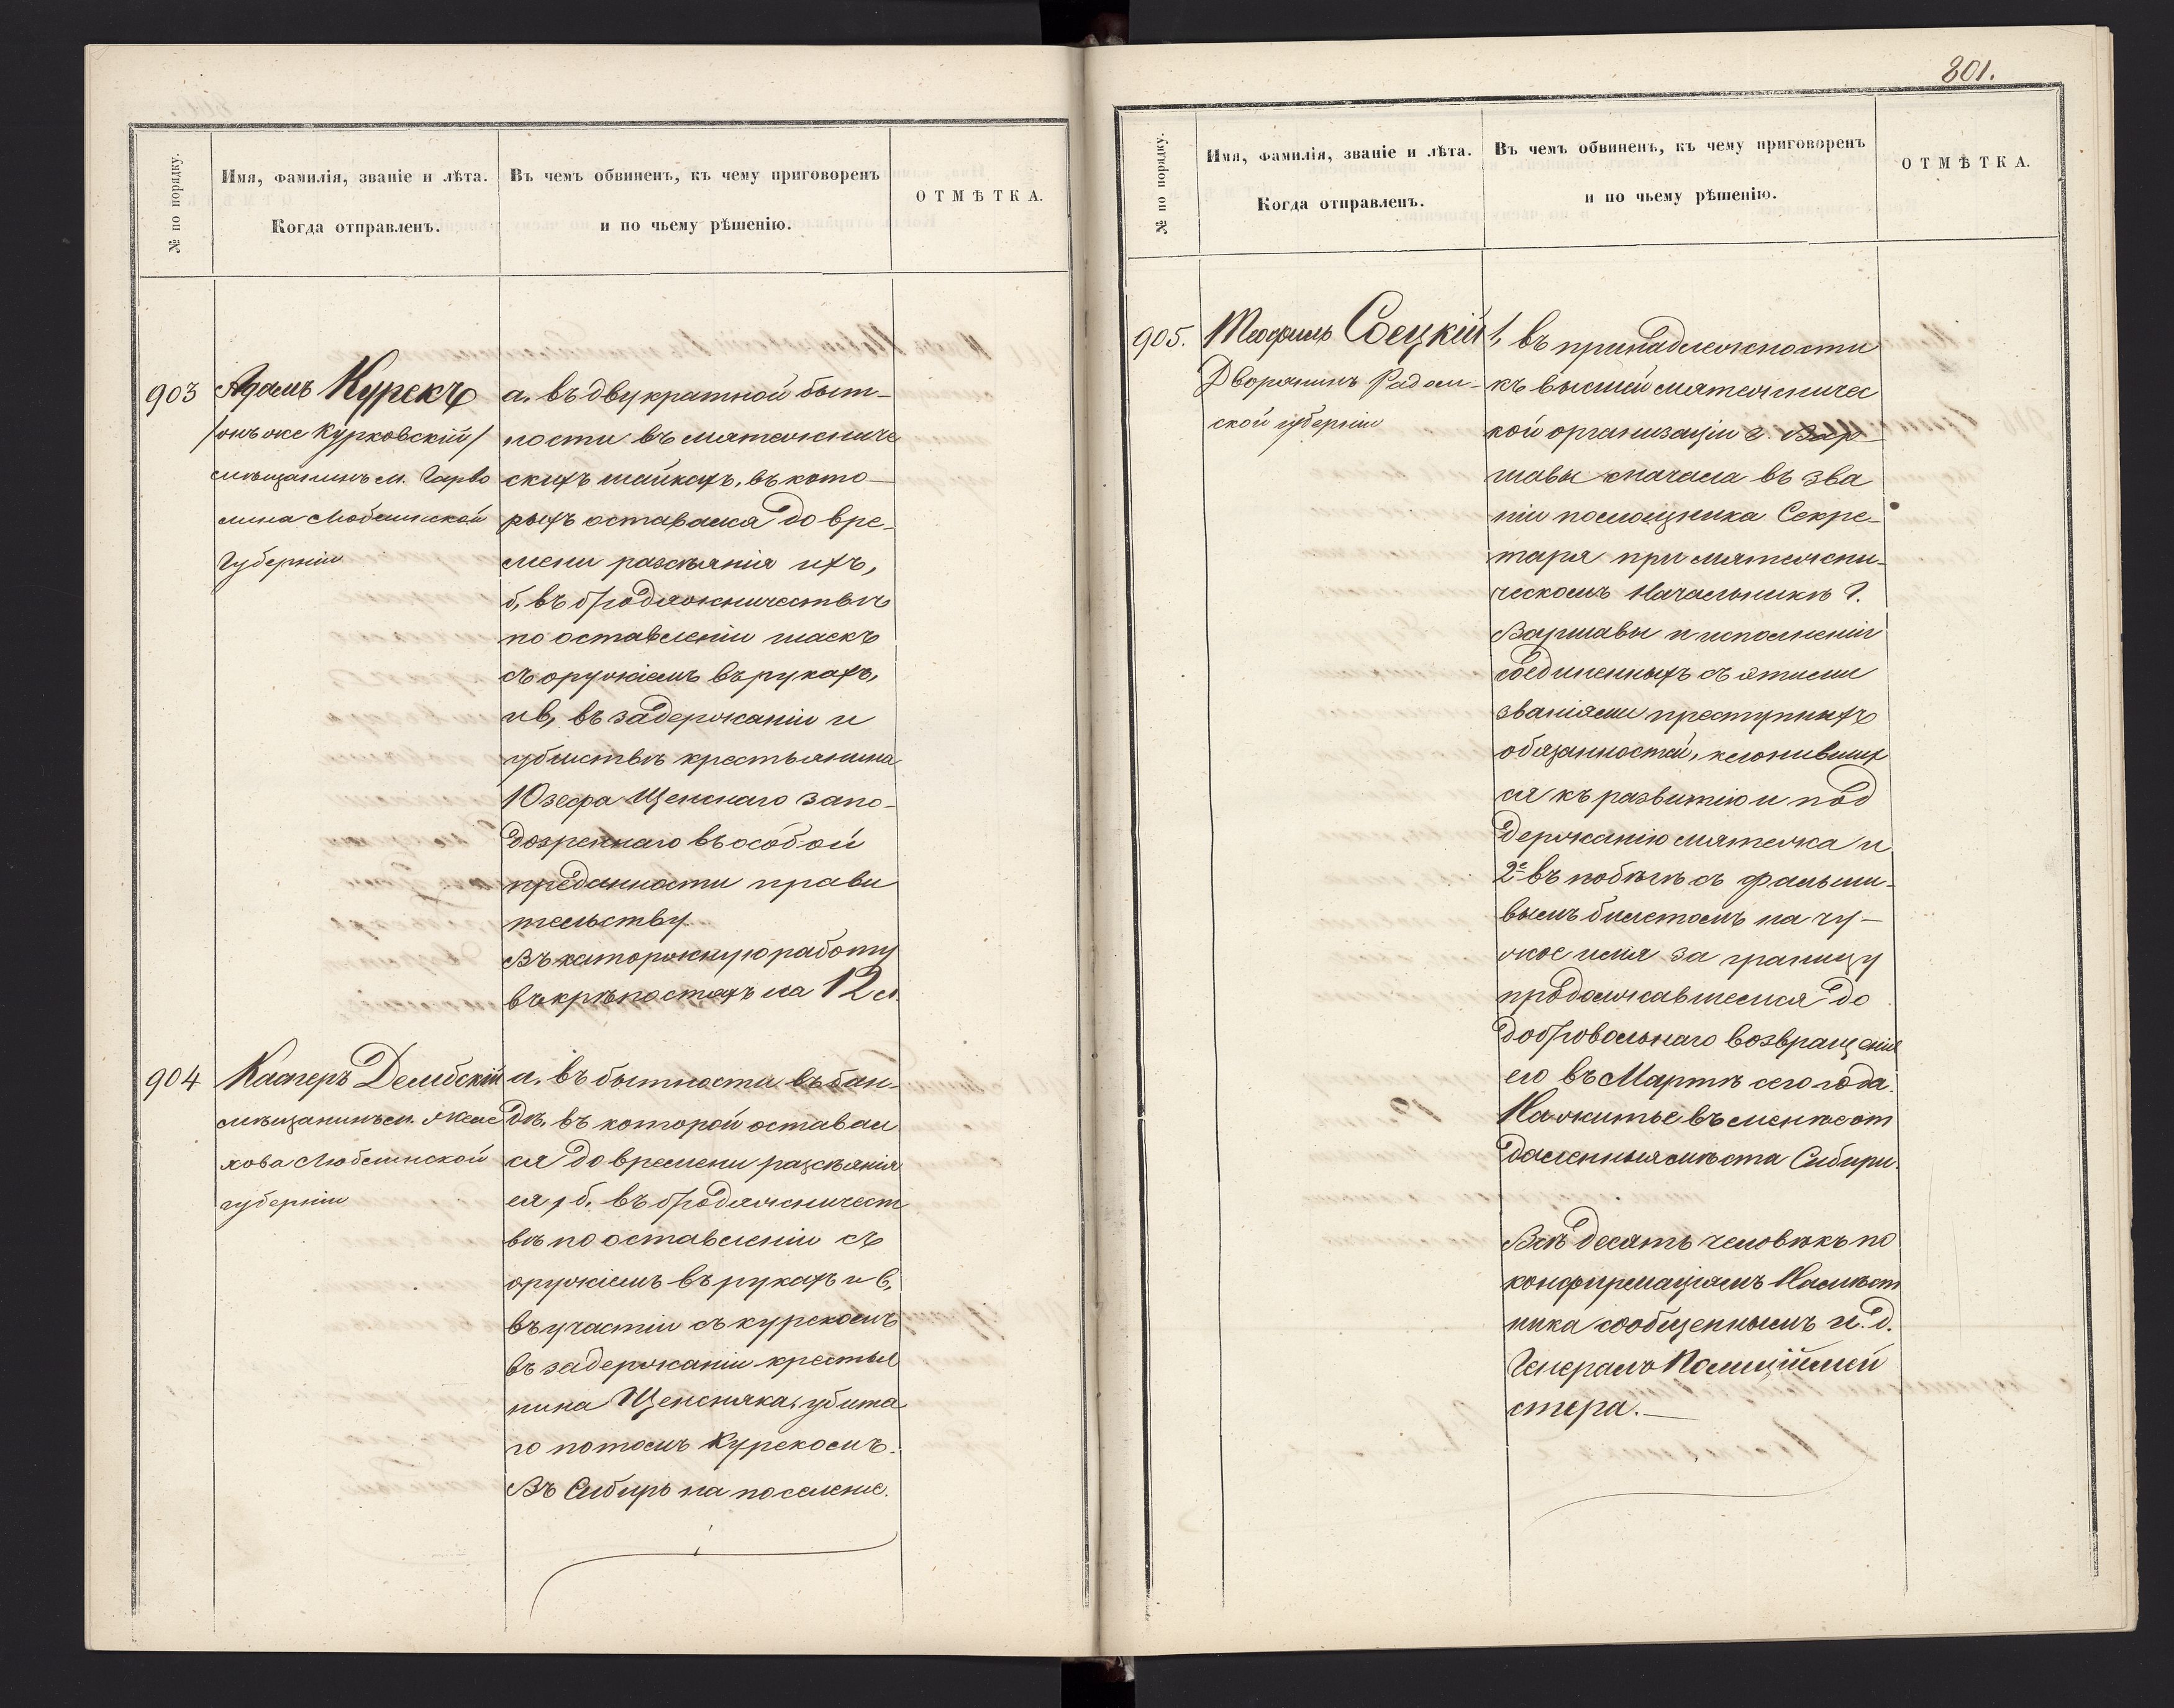 № по порядку.
Имя, фамилія, званіе и лѣта.
Когда отправленъ.
Въ чемъ обвиненъ, къ чему приговоренъ
и по чьему рѣшенію.
ОТМѢТКА.
903
Адамъ Курекъ
/онъ же Курковскій/
мѣщанинъ м. Гарво
лина Люблинской
Губерніи
а, въ двукратной быт-
ности въ мятежниче
скихъ шайкахъ, въ кото-
рыхъ оставался до вре-
мени разсѣянія ихъ,
б, въ бродяжничествѣ
по оставленіи шаекъ
съ оружіемъ въ рукахъ,
и в, въ задержаніи и
убийствѣ крестьянина
Юзефа Щенснаго запо-
дозреннаго въ особой
преданности прави
тельству.
Въ каторжную работу
въ крѣпостяхъ на 12 л.
904
Касперъ Дембскій
мѣщанинъ м. Желе
хова Люблинской
губерніи
а, въ бытности въ бан-
дѣ, въ которой оставал
ся до времени разсѣянія
ея, б, въ бродяжничест
вѣ по оставленіи съ
оружіемъ въ рукахъ и в,
въ участіи съ Курекомъ
въ задержаніи крестья
нина Щенсняка, убита
го потомъ Курекомъ.
Въ Сибирь на поселеніе.
801.
№ по порядку.
Имя, фамилія, званіе и лѣта.
Когда отправленъ.
Въ чемъ обвиненъ, къ чему приговоренъ
и по чьему рѣшенію.
ОТМѢТКА.
905.
Теофиль Соецкій
Дворянинъ Радом-
ской губерніи
1, въ принадлежности
къ высшей мятежничес
кой организаціи г. Вар-
шавы сначала въ зва
ніи помощника Секре-
таря при мятежни-
ческомъ Начальникѣ Г.
Варшавы и исполненіи
соединенныхъ съ этими
званіями преступныхъ
обязанностей, клонивших
ся къ развитію и под
держанію мятежа и
2е въ побѣгѣ съ фальши-
вымъ билетомъ на чу-
жое имя за границу
продолжавшемся до
добровольнаго возвращенія
его въ Мартѣ сего года.
На житье въ менѣе от
даленныя мѣста Сибири.
Всѣ десять человѣкъ по
конфирмаціямъ Намѣст
ника сообщеннымъ и. д.
Генералъ Полицiймей
стера.